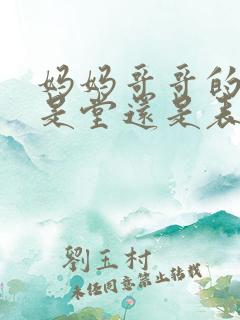 妈妈哥哥的
是堂还是表
劉玉村
未经同意禁止转载